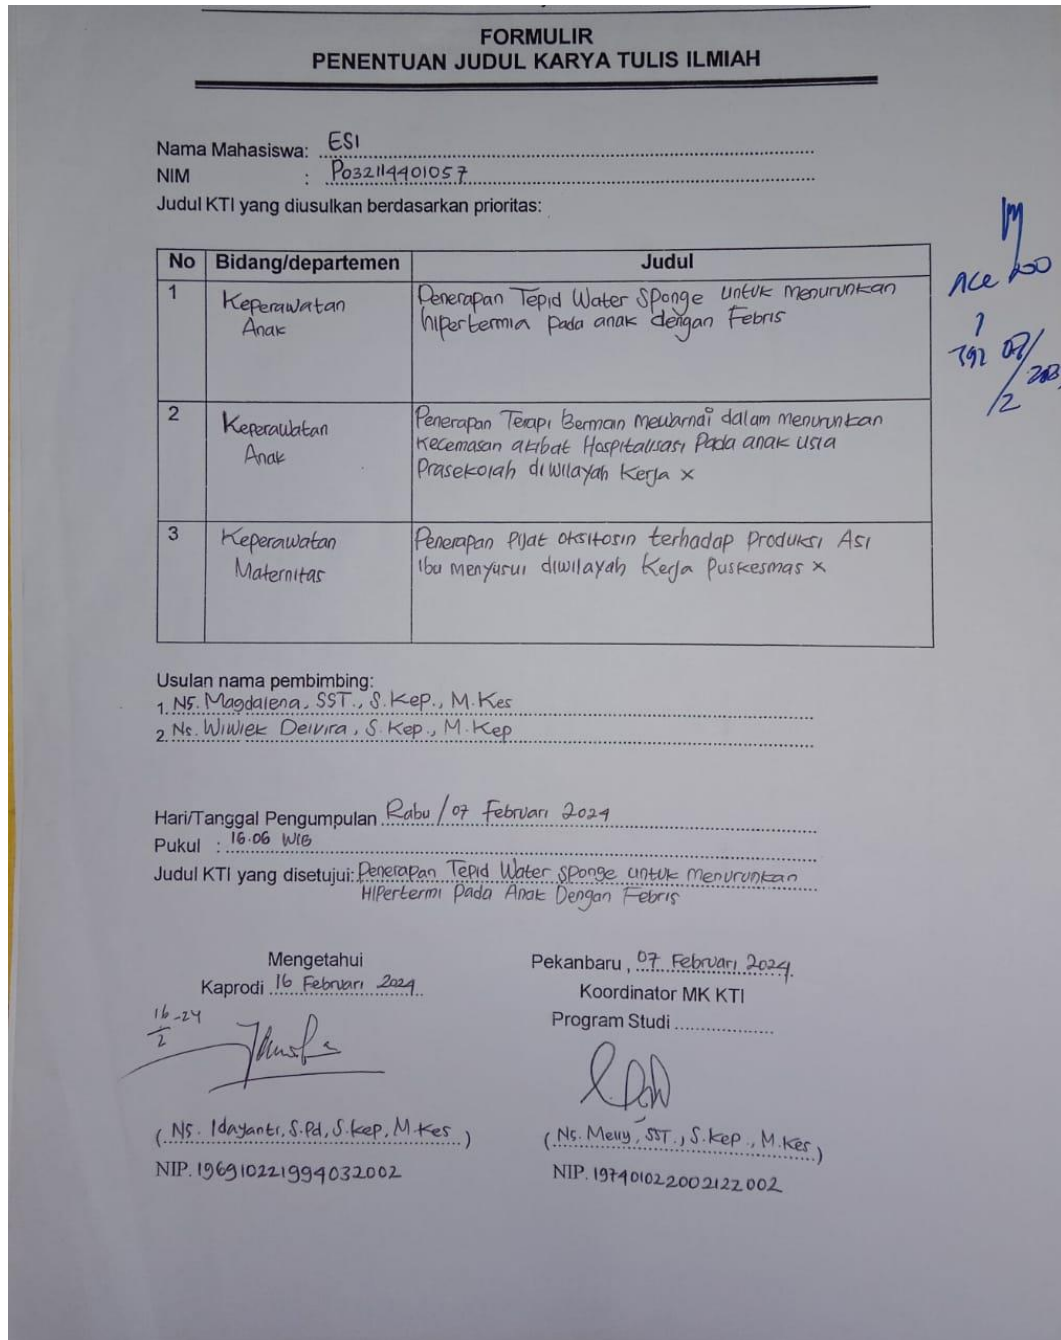 FORMULIR
PENENTUAN JUDUL KARYA TULIS ILMIAH
Nama Mahasiswa: ESI
NIM : P032114401057
Judul KTI yang diusulkan berdasarkan prioritas:
No Bidang/departemen Judul
1 Keperawatan Anak Penerapan Tepid Water Sponge untuk menurunkan
hipertermia pada anak dengan Febris
2 Keperawatan Anak Penerapan Terapi Berman mewarnai dalam menurunkan
kecemasan akibat Hospitalisasi Pada anak usia
Prasekolah diwilayah Kerja x
3 Keperawatan Maternitas Penerapan Pijat oksitosin terhadap Produksi Asi
Ibu menyusui diwilayah Kerja Puskesmas x
ACC
1
Usulan nama pembimbing:
1. Ns. Magdalena, SST., S.Kep., M.Kes
2. Ns. Wiwiek Delvira, S.Kep., M.Kep
Hari/Tanggal Pengumpulan Rabu / 07 Februari 2024
Pukul : 16.06 WIB
Judul KTI yang disetujui: Penerapan Tepid Water Sponge untuk menurunkan
Hipertermi Pada Anak Dengan Febris
Mengetahui
Kaprodi 16 Februari 2024
16/2-24
Pekanbaru, 07 Februari 2024
Koordinator MK KTI
Program Studi
(Ns. Idayanti, S.Pd, S.Kep, M.Kes)
NIP. 196910221994032002
(Ns. Melly, SST., S.Kep., M.Kes)
NIP. 197401022002122002